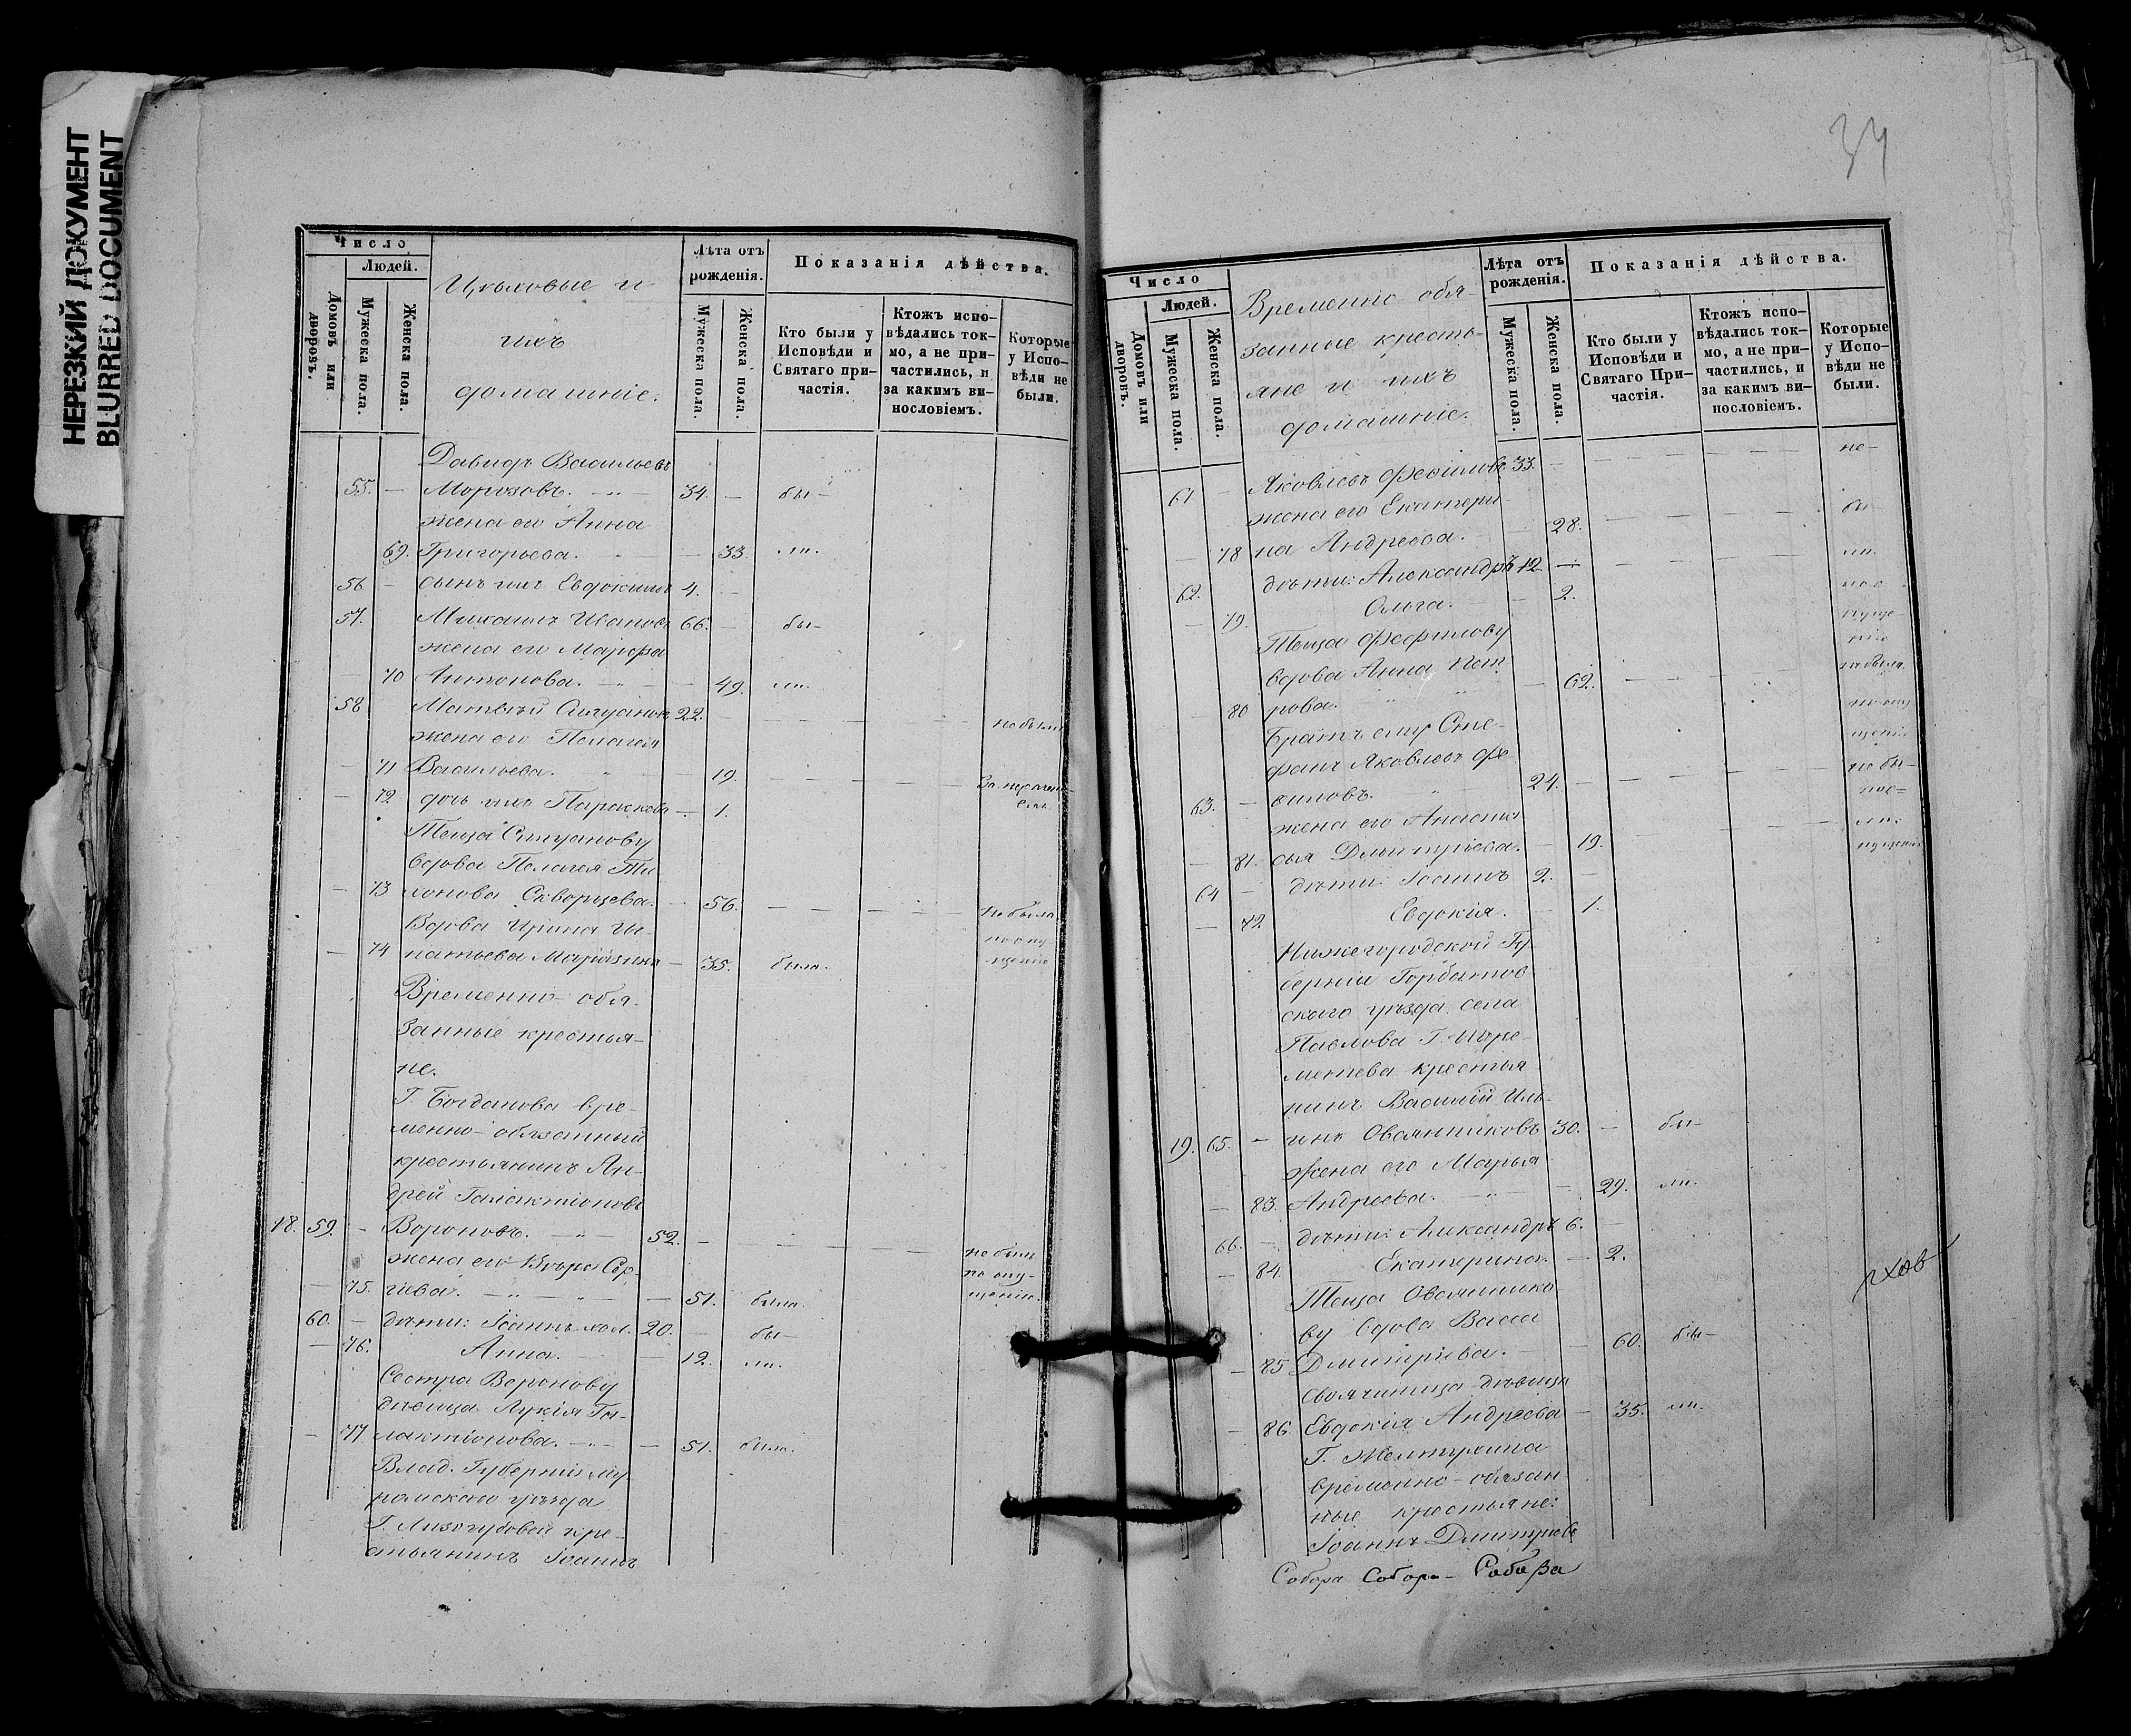 НЕРЕЗКИЙ ДОКУМЕНТ
BLURRED DOCUMENT
Число
Людей.
Домовъ или дворовъ.
Мужеска пола.
Женска пола.
Цѣховые и
ихъ
домашніе.
Лѣта отъ рожденія.
Мужеска пола.
Женска пола.
Показанія дѣйства.
Кто были у Исповѣди и Святаго причастія.
Ктожъ исповѣдались токмо, а не причастились, и за какимъ винословіемъ.
Которые у Исповѣди не были.
Давидъ Васильевъ
55. — Морозовъ. — „ — 34. — бы—
жена его Анна
69. Григорьева. „ — 33. ли.
56 — сынъ ихъ Евдокимъ 4. —
57. Михаилъ Ивановъ 66. — бы—
жена его Марѳа
— 70 Антонова. — „ — 49. ли.
58 Матвѣй 22. — не былъ
жена его Пелагея
— 71 Васильева. „ 19. —
— 72 дочь ихъ Параскева — 1.
Теща
вдова Пелагея Ти
— 73 хонова Скворцева. — 56. — не была
Вдова Ирина Иг по опу
— 74 натьева — 35. была. щенію
Временно-обя-
занные крестья-
не.
Г. Богданова вре-
менно-обязанный
крестьянинъ Ан-
дрей Галактіоновъ
18. 59. — Вороновъ. — „ — 52. — не былъ
жена его Вѣра Сер- по опу-
— 75. гіева. — „ — „ — 51. была. щенію.
60. — дѣти: Іоаннъ хол. 20. — бы—
— 76. Анна. — 12. ли.
Сестра Воронову
дѣвица Лукія Га-
— 77 лактіонова. — „ — 51. была.
Влад. Губерніи Му
ромскаго уѣзда
Г. кре-
стьянинъ Іоаннъ
34
Число
Людей.
Домовъ или дворовъ.
Мужеска пола
Женска пола.
Временно-обя-
занные кресть-
яне и ихъ
домашніе.
Лѣта отъ рожденія.
Мужеска пола.
Женска пола.
Показанія дѣйства.
Кто были у Исповѣди и Святаго Причастія.
Ктожъ исповѣдались токмо, а не причастились, и за какимъ винословіемъ.
Которые у Исповѣди не были.
61 — Яковлевъ 33. — не—
жена его Екатери
— 78 на Андреева. — 28. — бы
62. дѣти: Александръ 12 — ли.
— 79. Ольга. — 2.
Теща
вдова Анна Пет
— 80 рова. — 62. — не была
Братъ ему Сте- по опу
фанъ Яковлевъ щенію
63. — 24. — не бы—
жена его Анаста
— 81. сья Дмитріева. — 19. ли.
64 — дѣти: Іоаннъ 2. —
— 72 Евдокія. — 1.
Нижегородской Гу-
берніи Горбатов
скаго уѣзда села
Павлова Г. Шере-
метева крестья
нинъ Василій Иль-
19. 65. — инъ Овсянниковъ 30. — бы—
жена его Марья
— 83. Андреева. — „ — 29. ли.
66. — дѣти: Александръ 6. —
— 84. Екатерина. — 2.
Теща Овсяннико
ву вдова Васса
— 85 Дмитріева. — 60. бы—
свояченица дѣвица
— 86. Евдокія Андреева — 35. ли.
Г. Желтухина
временно-обязан
ные крестьяне:
Іоаннъ Дмитріевъ
Собора Собора- Собора